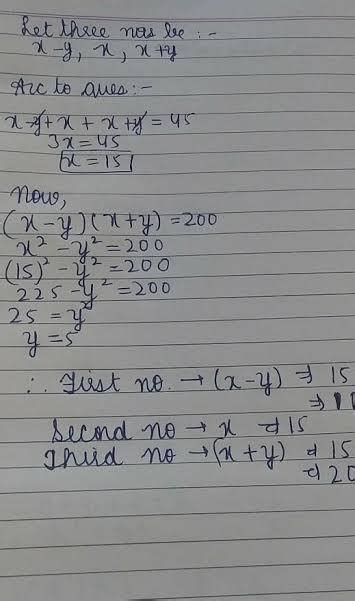 Let three nos be :-
x-y, x, x+y
Acc to ques:-
x-y+x+x+y = 45
3x = 45
x = 15
Now,
(x-y)(x+y) = 200
x² - y² = 200
(15)² - y² = 200
225 - y² = 200
25 = y²
y = 5
∴ First no. → (x-y) ⇒ 15
⇒ 10
Second no → x ⇒ 15
Third no → (x+y) ⇒ 15
⇒ 20